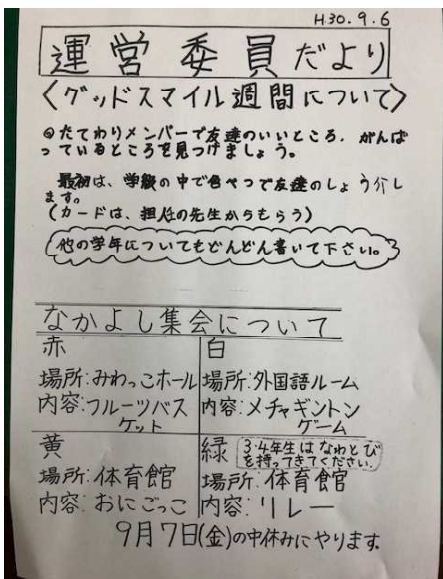 H.30.9.6
運営委員だより
〈グッドスマイル週間について〉
◎たてわりメンバーで友達のいいところ、がんば
っているところを見つけましょう。
最初は、学級の中で色べつで友達のしょう介し
ます。
(カードは、担任の先生からもらう)
他の学年についてもどんどん書いて下さい。
なかよし集会について
赤
場所:みわっこホール
内容:フルーツバス
ケット
白
場所:外国語ルーム
内容:メチャギントン
ゲーム
黄
場所:体育館
内容:おにごっこ
緑
3・4年生はなわとび
を持ってきてください。
場所:体育館
内容:リレー
9月7日(金)の中休みにやります。